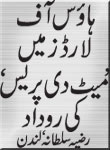 ہاؤس آف
لارڈز میں
’میٹ دی پریس‘
کی روداد
رضیہ سلطانہ‘ لندن